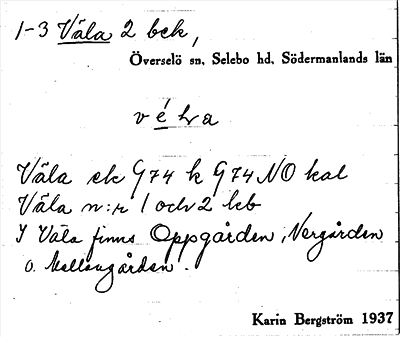 1-3 Väla 2 bck,
Överselö sn. Selebo hd. Södermanlands län
Väla ek G74 k G74 NO kal
Väla n:r 1 och 2 leb
I Väla finns Oppgården, Nergården
o. Mellangården.
Karin Bergström 1937